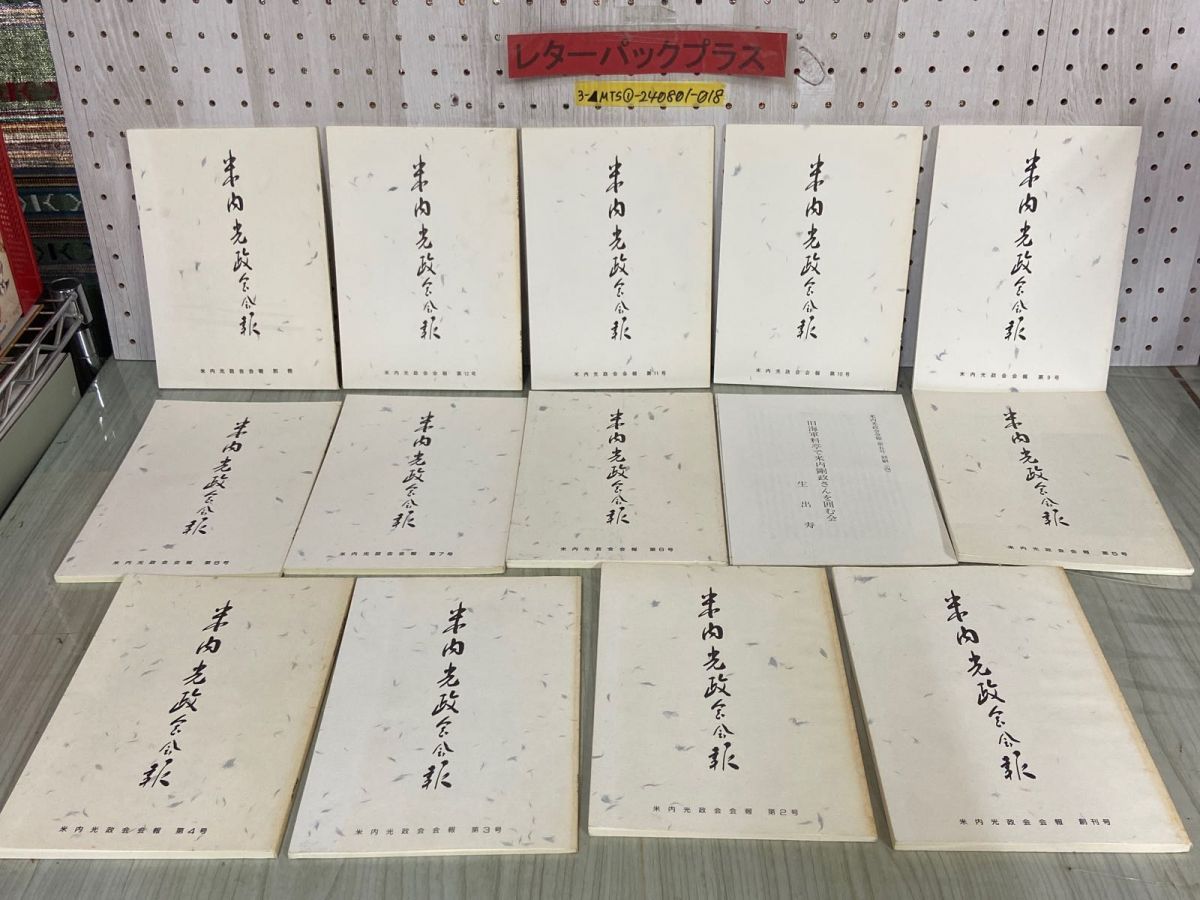 レターパックプラス
3-▲MTS①-240801-018
米内光政会会報
米内光政会会報 別冊
米内光政会会報
米内光政会会報 第12号
米内光政会会報
米内光政会会報 第11号
米内光政会会報
米内光政会会報 第10号
米内光政会会報
米内光政会会報 第9号
米内光政会会報
米内光政会会報 第8号
米内光政会会報
米内光政会会報 第7号
米内光政会会報
米内光政会会報 第6号
旧海軍料亭で米内剛政さんを囲む会
生出 寿
米内光政会会報
米内光政会会報 第5号
米内光政会会報
米内光政会会報 第4号
米内光政会会報
米内光政会会報 第3号
米内光政会会報
米内光政会会報 第2号
米内光政会会報
米内光政会会報 創刊号